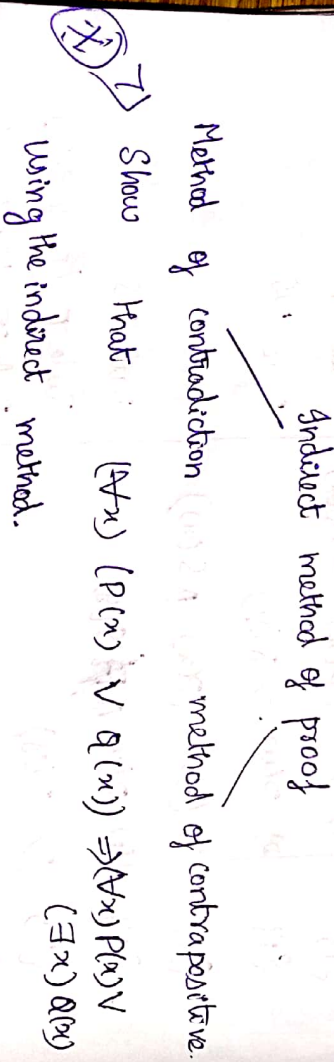 Indirect method of proof
Method of contradiction method of contrapositive.
7) Show that (∀x) (P(x) ∨ Q(x)) ⇒ (∀x) P(x) ∨
(∃x) Q(x)
using the indirect method.